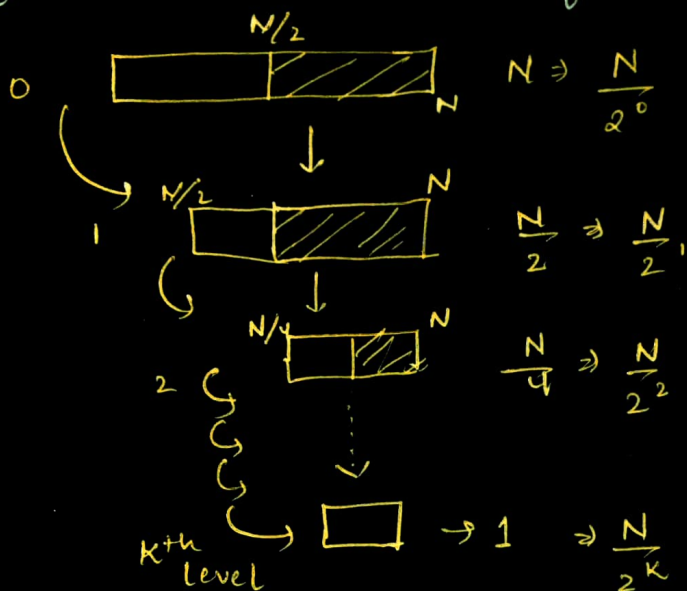 N/2
0
N
N ⇒ N/2^0
N/2
N
1
N/2 ⇒ N/2^1
N/4
N
2
N/4 ⇒ N/2^2
Kth level
→ 1 ⇒ N/2^K